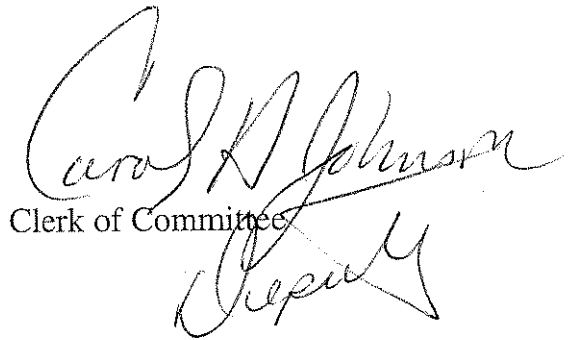 Carol H Johnson
Clerk of Committee
Deputy